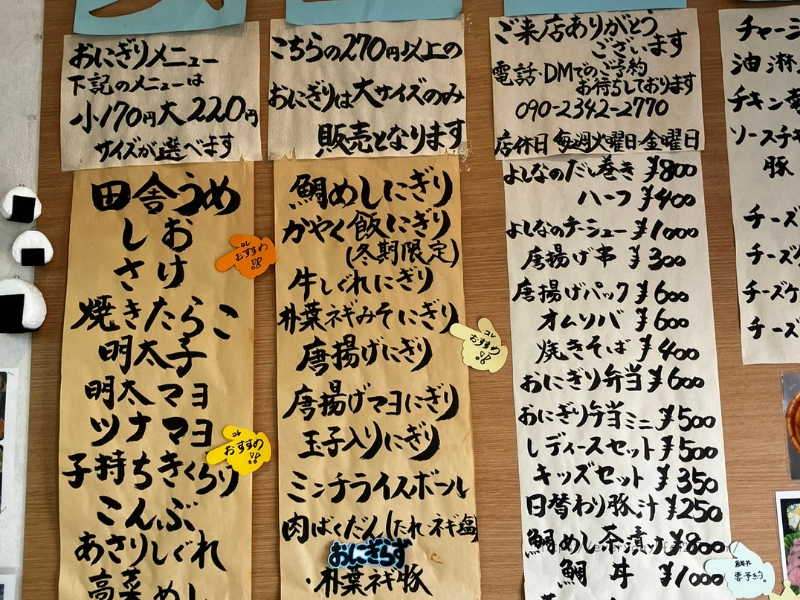 おにぎりメニュー
下記のメニューは
小170円大220円
サイズが選べます
田舎うめ
しお
さけ
コレ
おすすめ
焼きたらこ
明太子
明太マヨ
ツナマヨ
コレ
おすすめ
子持ちきくらり
こんぶ
あさりしぐれ
高菜めし
こちらの270円以上の
おにぎりは大サイズのみ
販売となります
鯛めしにぎり
かやく飯にぎり
(冬期限定)
牛しぐれにぎり
朴葉ネギみそにぎり
コレ
おすすめ
唐揚げにぎり
唐揚げマヨにぎり
玉子入りにぎり
ミンチライスボール
肉ばくだん(たれ・ネギ塩)
おにぎらず
・朴葉ネギ豚
ご来店ありがとう
ございます
電話・DMでのご予約
お待ちしております
090-2342-2770
店休日 毎週火曜日・金曜日
よしなのだし巻き ¥800
ハーフ ¥400
よしなのチーシュー ¥1000
唐揚げ串 ¥300
唐揚げパック ¥600
オムソバ ¥600
焼きそば ¥400
おにぎり弁当 ¥600
おにぎり弁当ミニ ¥500
レディースセット ¥500
キッズセット ¥350
日替わり豚汁 ¥250
鯛めし茶漬け ¥800
鯛丼 ¥1000
要予約。
チャーシ
油淋
チキン
ソースチキ
豚
チーズ
チーズ
チーズケ
チーズ